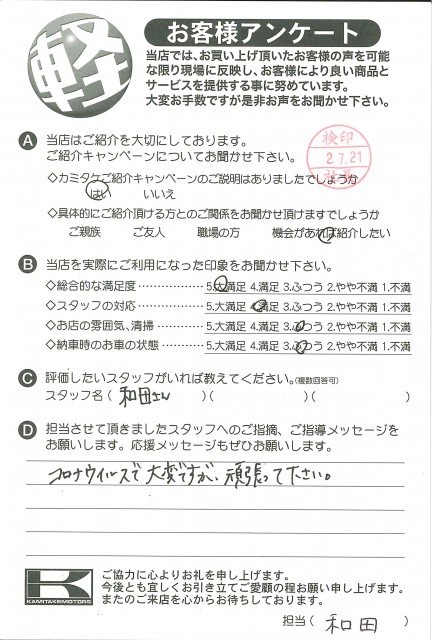 軽
お客様アンケート
当店では、お買い上げ頂いたお客様の声を可能
な限り現場に反映し、お客様により良い商品と
サービスを提供する事に努めています。
大変お手数ですが是非お声をお聞かせ下さい。
A 当店はご紹介を大切にしております。
ご紹介キャンペーンについてお聞かせ下さい。
検印
2.7.21
◇カミタケご紹介キャンペーンのご説明はありましたでしょうか
はい いいえ
◇具体的にご紹介頂ける方とのご関係をお聞かせ頂けますでしょうか
ご親族 ご友人 職場の方 機会があれば紹介したい
B 当店を実際にご利用になった印象をお聞かせ下さい。
◇総合的な満足度 5.大満足 4.満足 3.ふつう 2.やや不満 1.不満
◇スタッフの対応 5.大満足 4.満足 3.ふつう 2.やや不満 1.不満
◇お店の雰囲気、清掃 5.大満足 4.満足 3.ふつう 2.やや不満 1.不満
◇納車時のお車の状態 5.大満足 4.満足 3.ふつう 2.やや不満 1.不満
C 評価したいスタッフがいれば教えてください。(複数回答可)
スタッフ名 ( 和田さん )( )( )
D 担当させて頂きましたスタッフへのご指摘、ご指導メッセージを
お願いします。応援メッセージもぜひお願いします。
コロナウイルスで大変ですが、頑張って下さい。
K
KAMITAKEMOTORS
ご協力に心よりお礼を申し上げます。
今後とも宜しくお引き立てご愛顧の程お願い申し上げます。
またのご来店を心からお待ちしております。
担当( 和田 )